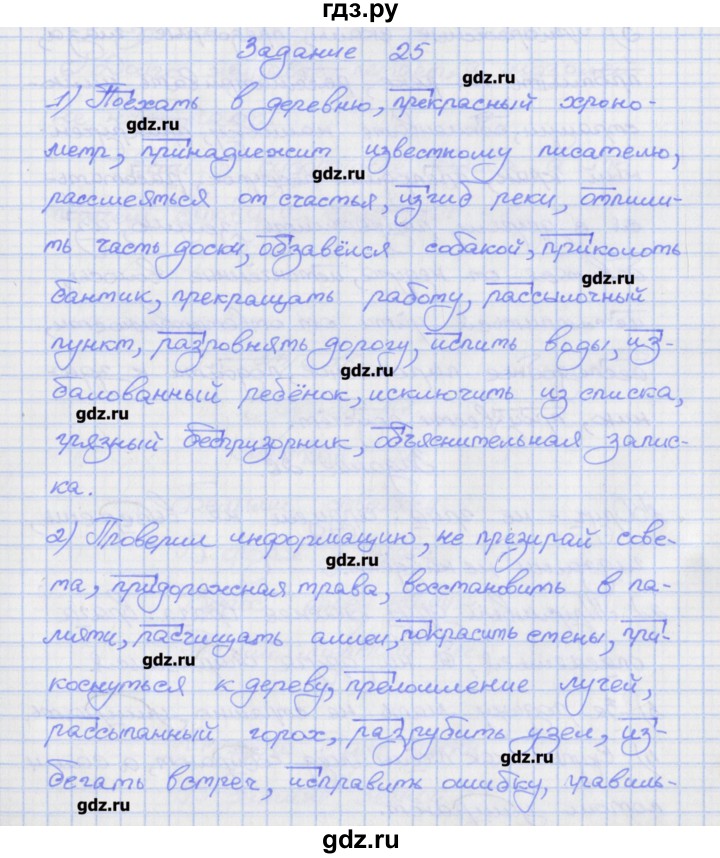 гдз.ру
Задание 25
gdz.ru
1) Поехать в деревню, прекрасный хроно-
gdz.ru
метр, принадлежит известному писателю,
gdz.ru
рассмеяться от счастья, изгиб реки, отпили-
ть часть доски, обзавёлся собакой, приколоть
gdz.ru
бантик, прекращать работу, рассылочный
пункт, разровнять дорогу, испить воды, из-
gdz.ru
балованный ребёнок, исключить из списка,
gdz.ru
грязный беспризорник, объяснительная запис-
ка.
2) Проверил информацию, не презирай сове-
gdz.ru
та, придорожная трава, восстановить в па-
мяти, расчищать аллеи, покрасить стены, при-
gdz.ru
коснуться к дереву, преломление лучей,
рассыпанный горох, разрубить узел, из-
gdz.ru
бегать встреч, исправить ошибку, правиль-
gdz.ru
gdz.ru